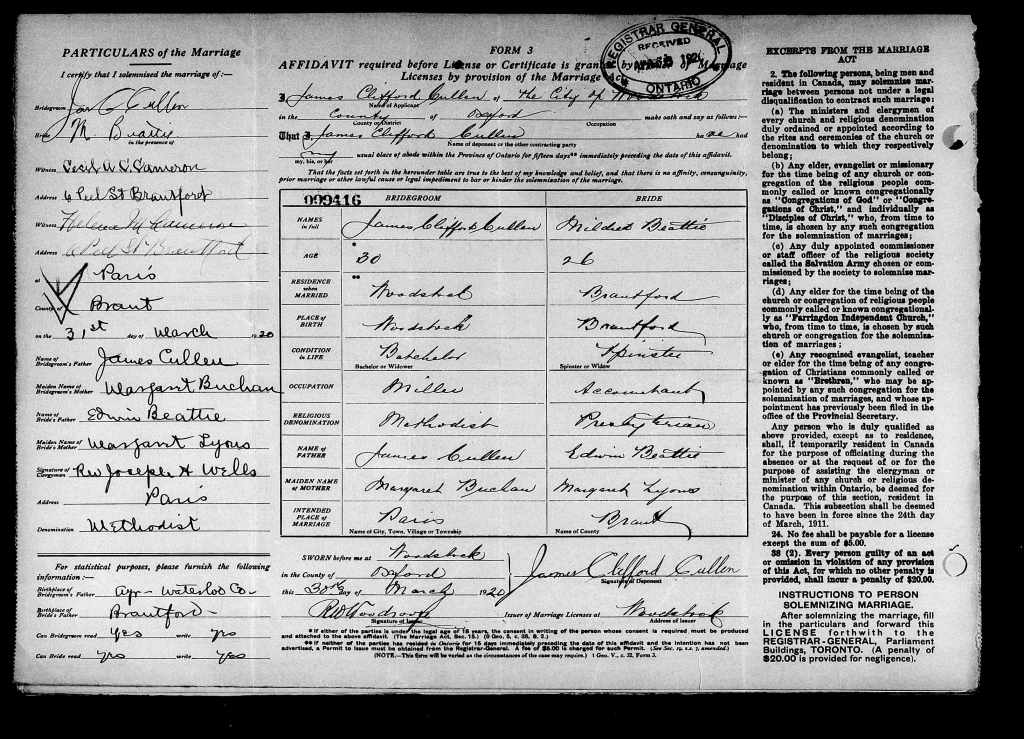 PARTICULARS of the Marriage
I certify that I solemnized the marriage of :—
Bridegroom Jas C Cullen
Bride M. Beatty
in the presence of
Witness Cecil W. C. Cameron
Address 6 Peel St Brantford
Witness
Address
at Paris
County of Brant
on the 31st day of March 1920
Name of Bridegroom's Father James Cullen
Maiden Name of Bridegroom's Mother Margaret Buchan
Name of Bride's Father Edwin Beattie
Maiden Name of Bride's Mother Margaret Lyons
Signature of Clergyman Rev Joseph H Wells
Address Paris
Denomination Methodist
For statistical purposes, please furnish the following information :—
Birthplace of Bridegroom's Father Ayr - Waterloo Co -
Birthplace of Bride's Father Brantford -
Can Bridegroom read yes write yes
Can Bride read yes write yes
FORM 3
AFFIDAVIT required before License or Certificate is granted by Issuer of Marriage
Licenses by provision of the Marriage Act
REGISTRAR GENERAL
RECEIVED
ONTARIO
I, James Clifford Cullen of The City of Woodstock
Name of Applicant
in the County of Oxford make oath and say as follows:—
County or District Occupation
That I James Clifford Cullen have had
Name of deponent or the other contracting party
my usual place of abode within the Province of Ontario for fifteen days** immediately preceding the date of this affidavit.
my, his, or her
That the facts set forth in the hereunder table are true to the best of my knowledge and belief, and that there is no affinity, consanguinity,
prior marriage or other lawful cause or legal impediment to bar or hinder the solemnization of the marriage.
009416 BRIDEGROOM BRIDE
NAMES in full James Clifford Cullen Mildred Beattie
AGE * 30 26
RESIDENCE when MARRIED ** Woodstock Brantford
PLACE OF BIRTH Woodstock Brantford
CONDITION IN LIFE Batchelor Spinster
Bachelor or Widower Spinster or Widow
OCCUPATION Miller Accountant
RELIGIOUS DENOMINATION Methodist Presbyterian
NAME OF FATHER James Cullen Edwin Beattie
MAIDEN NAME OF MOTHER Margaret Buchan Margaret Lyons
INTENDED PLACE OF MARRIAGE Paris Brant
Name of City, Town, Village or Township Name of County
SWORN before me at Woodstock
in the County of Oxford
James Clifford Cullen
Signature of Deponent
this 30th day of March 1920
Issuer of Marriage Licenses at Woodstock
Signature of Issuer Address of Issuer
* If either of the parties is under the legal age of 18 years, the consent in writing of the person whose consent is required must be produced
and attached to the above affidavit. (The Marriage Act, Sec. 15.)
** If neither of the parties has resided in Ontario for 15 days immediately preceding the date of this affidavit and the intention has not been
advertised, a Permit to Issue must be obtained from the Registrar-General. A fee of $5.00 is charged for such Permit. (See Sec. 19, s.s. 7, amended.)
(NOTE.—This form will be varied as the circumstances of the case may require.) 1 Geo. V., c. 32, Form 3.
EXCERPTS FROM THE MARRIAGE
ACT
2. The following persons, being men and
resident in Canada, may solemnize mar-
riage between persons not under a legal
disqualification to contract such marriage:
(a) The ministers and clergymen of
every church and religious denomination
duly ordained or appointed according to
the rites and ceremonies of the church or
denomination to which they respectively
belong;
(b) Any elder, evangelist or missionary
for the time being of any church or con-
gregation of the religious people com-
monly called or known congregationally
as "Congregations of God" or "Congre-
gations of Christ," and individually as
"Disciples of Christ," who, from time to
time, is chosen by any such congregation
for the solemnization of marriages;
(c) Any duly appointed commissioner
or staff officer of the religious society
called the Salvation Army chosen or com-
missioned by the society to solemnize mar-
riages;
(d) Any elder for the time being of the
church or congregation of religious people
commonly called or known congregational-
ly as "Farringdon Independent Church,"
who, from time to time, is chosen by such
church or congregation for the solemniza-
tion of marriages;
(e) Any recognised evangelist, teacher
or elder for the time being of any congre-
gation of Christians commonly called or
known as "Brethren," who may be ap-
pointed by any such congregation for the
solemnization of marriages, and whose ap-
pointment has previously been filed in the
office of the Provincial Secretary.
Any person who is duly qualified as
above provided, except as to residence,
shall, if temporarily resident in Canada
for the purpose of officiating during the
absence or at the request of or for the
purpose of assisting the clergyman or
minister of any church or religious de-
nomination within Ontario, be deemed for
the purpose of this section, resident in
Canada. This subsection shall be deemed
to have been in force since the 24th day
of March, 1911.
24. No fee shall be payable for a license
except the sum of $5.00.
38 (2). Every person guilty of an act
or omission in violation of any provision
of this Act, for which no other penalty is
provided, shall incur a penalty of $20.00.
INSTRUCTIONS TO PERSON
SOLEMNIZING MARRIAGE.
After solemnizing the marriage, fill
in the particulars and forward this
LICENSE forthwith to the
REGISTRAR-GENERAL, Parliament
Buildings, TORONTO. (A penalty of
$20.00 is provided for negligence).